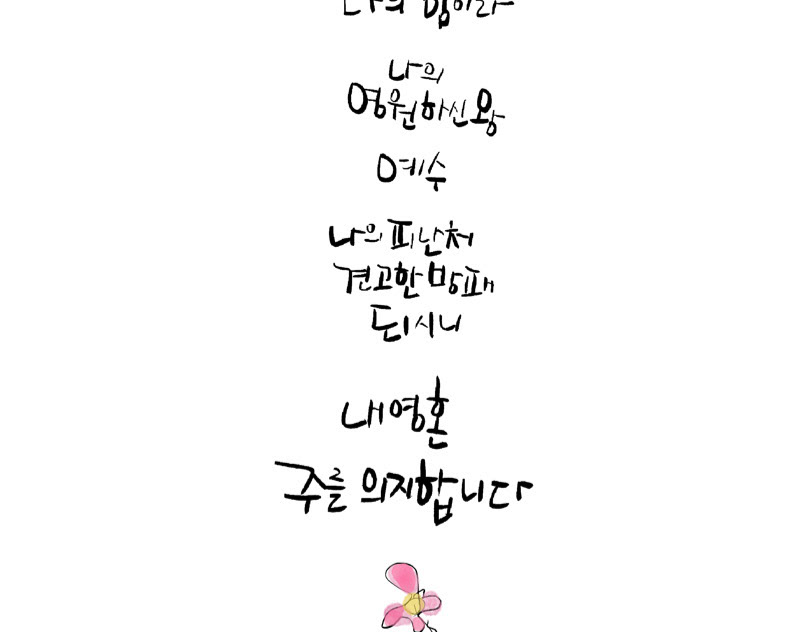 나의 힘이라
나의
영원하신 왕
예수
나의 피난처
견고한 방패
되시니
내 영혼
주를 의지합니다